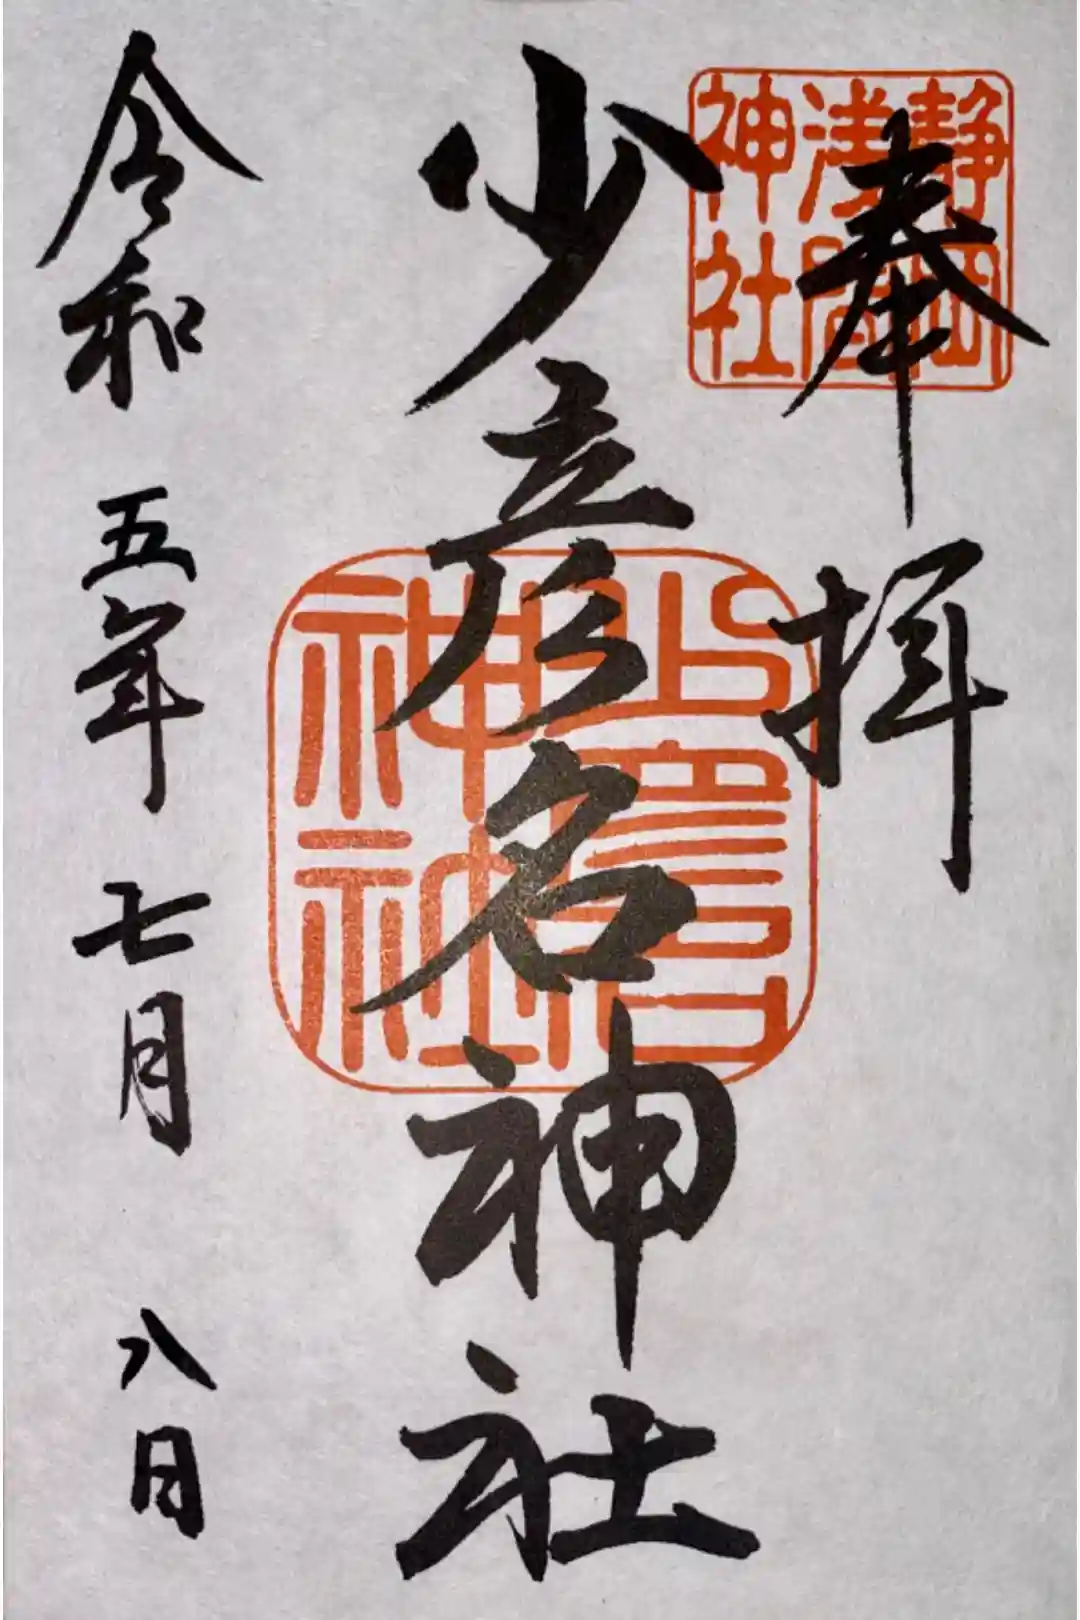 奉拝
静岡
浅間
神社
少彦名神社
神社
令和五年七月八日